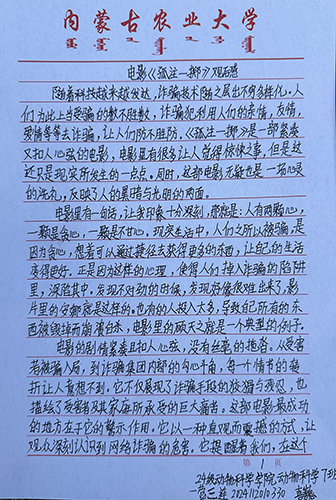 内蒙古农业大学
电影《孤注一掷》观后感
随着科技越来越发达，诈骗技术随之层出不穷多样化。人
们为此上当受骗的数不胜数，诈骗犯利用人们的亲情，友情，
爱情等等去诈骗，让人们防不胜防。《孤注一掷》是一部紧凑
又扣人心弦的电影，电影里有很多让人觉得惊悚之事，但是这
还只是现实所发生的一点点。同时，这部电影无疑也是一场心灵
的洗礼，反映了人的黑暗与光明的两面。
电影里有一句话，让我印象十分深刻，那就是：人有两颗心，
一颗是贪心，一颗是不甘心。现实生活中，人们之所以被骗，是
因为贪心，想着可以通过捷径去获得更多的东西，让自己的生活
变得更好。正是因为这样的心理，使得人们掉入诈骗的陷阱
里，深陷其中。发现不对劲的时候，发现将像很难出来了，影
片里的安娜就是这样的。也有的人投入太多，导致自己所有的东
西被毁掉而崩溃自来，电影里的顾天之就是一个典型的例子。
电影的剧情紧凑且扣人心弦，没有丝毫的拖沓。从受害
者被骗入局，到诈骗集团内部的勾心斗角，每一个情节的转
折让人意想不到。它不仅展现了诈骗手段的狡猾与残忍，也
描绘了受害者及其家庭所承受的巨大痛苦。这部电影最成功
的地方在于它的警示作用。它以一种直观而震撼的方式，让
观众深刻认识到网络诈骗的危害。它提醒着我们，在这个
第 1 页
24级动物科学学院动物科学7班